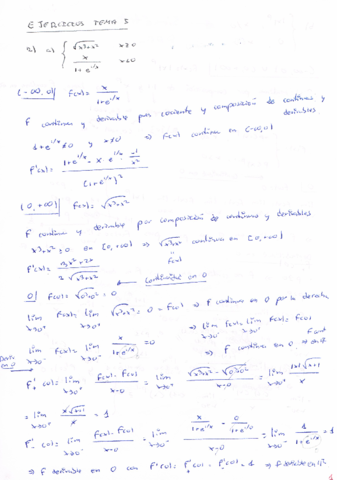 EJERCICIOS TEMA 5
2) a) { √x³+x² x≥0
x / 1+e^1/x x<0
(-∞,0) f(x)= x / 1+e^1/x
f continua y derivable por cociente y composición de continuas y derivables
1+e^1/x ≠0 y x≠0 ⇒ f(x) continua en (-∞,0)
f'(x)= 1+e^1/x - x e^1/x · -1/x² / (1+e^1/x)²
(0,+∞) f(x)= √x³+x²
f continua y derivable por composición de continuas y derivables
x³+x² ≥0 en [0,+∞) ⇒ √x³+x² continua en [0,+∞)
f(x)
f'(x)= 3x²+2x / 2√x³+x²
← continuidad en 0
0) f(0)= √0³+0² =0
lím x→0⁺ f(x)= lím x→0⁺ √x³+x² =0 = f(0) ⇒ f continua en 0 por la derecha
lím x→0⁻ f(x)= lím x→0⁻ x / 1+e^1/x =0 ⇒ lím x→0⁺ f(x)= lím x→0⁻ f(x)= f(0)
⇒ f continua en 0 ⇒ f cont en
en 0
f'₊(0)= lím x→0⁺ f(x)-f(0) / x-0 = lím x→0⁺ √x³+x² - √0³+0² / x-0 = lím x→0⁺ |x|√x+1 / x
= lím x→0⁺ x√x+1 / x = 1
f'₋(0)= lím x→0⁻ f(x)-f(0) / x-0 = lím x→0⁻ x / 1+e^1/x - 0 / 1+e^1/x / x-0 = lím x→0⁻ 1 / 1+e^1/x = 1
⇒ f derivable en 0 con f'(0)= f'₊(0)= f'₋(0)=1 ⇒ f derivable en